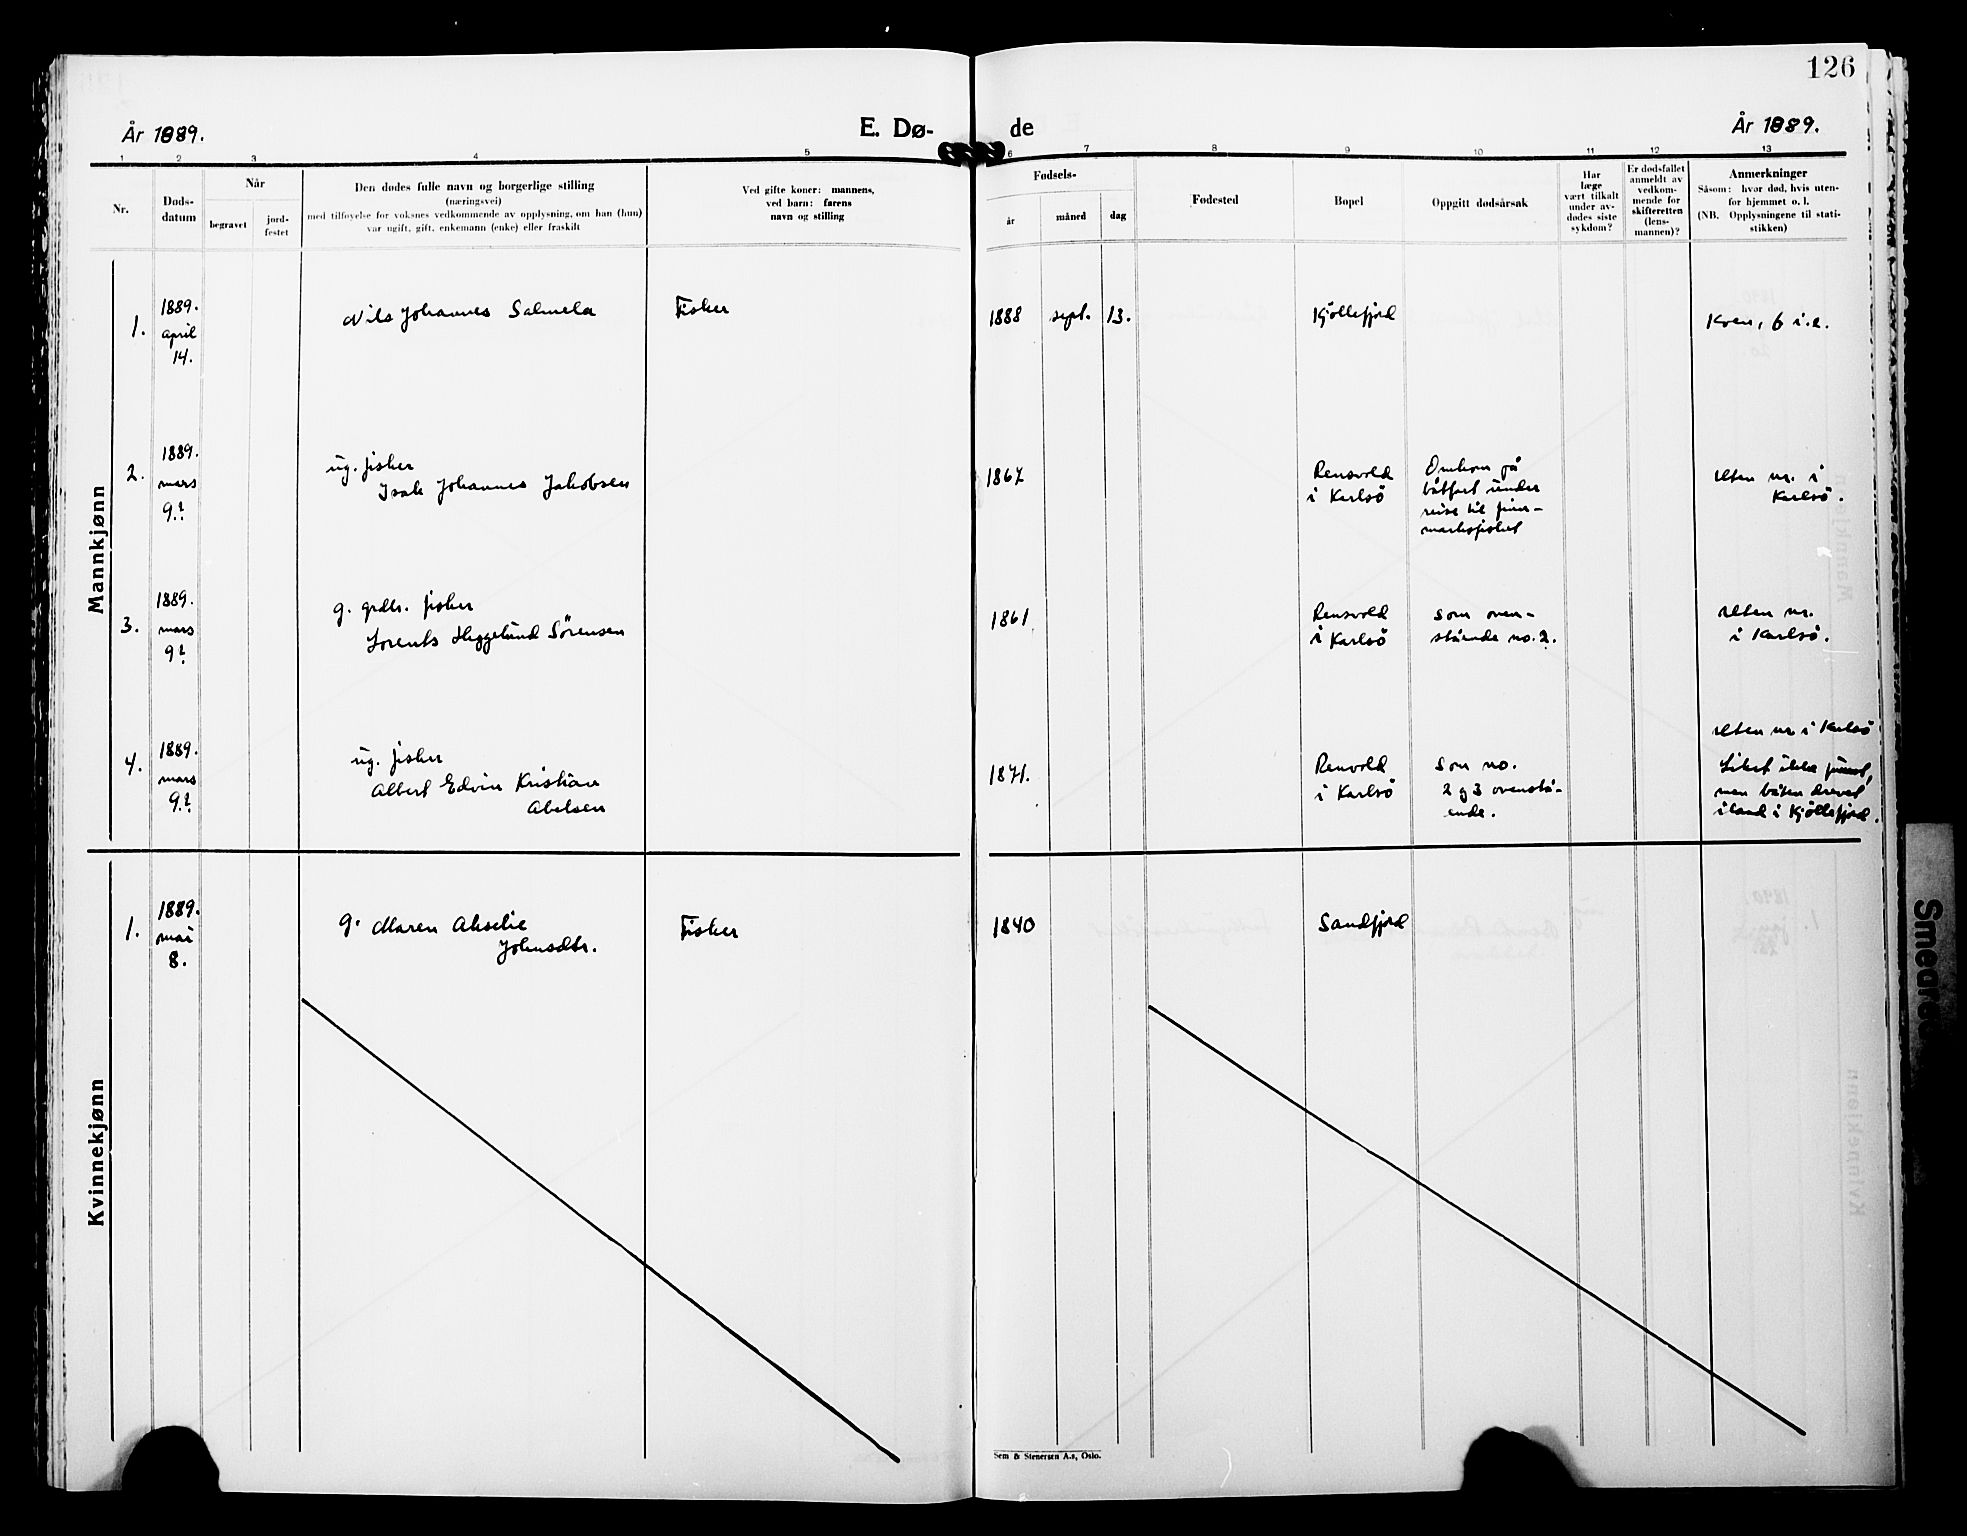 126
År 1889.
E. Dø-
de
År 1889.
1 2 3 4 5 6 7 8 9 10 11 12 13
Nr.
Døds-
datum
Når
begravet
jord-
festet
Den dødes fulle navn og borgerlige stilling
(næringsvei)
med tilføyelse for voksnes vedkommende av opplysning, om han (hun)
var ugift, gift, enkemann (enke) eller fraskilt
Ved gifte koner: mannens,
ved barn: farens
navn og stilling
Fødsels-
år
måned
dag
Fødested
Bopel
Oppgitt dødsårsak
Har
læge
vært tilkalt
under av-
dødes siste
sykdom?
Er dødsfallet
anmeldt av
vedkom-
mende for
skifteretten
(lens-
mannen)?
Anmerkninger
Såsom: hvor død, hvis uten-
for hjemmet o. l.
(NB. Opplysningene til stati-
stikken)
Mannkjønn
1.
1889.
april
14.
Nils Johannes Salmela
Fisker
1888 sept. 13.
Kjöllefjord
Kven, 6 i.e.
2.
1889.
mars
9.?
ug. fisker
Isak Johannes Jakobsen
1867
Rensvold
i Karlsö
Omkom på
båtfart under
reise til finn-
marksfisket
uten nr. i
Karlsö.
3.
1889.
mars
9?
g. grdbr. fisker
Lorents Heggelund Sörensen
1861
Rensvold
i Karlsö
som oven-
stående no. 2.
uten nr.
i Karlsö.
4.
1889.
mars
9.?
ug. fisker
Albert Edvin Kristian
Abelsen
1871.
Renvold
i Karlsö
Som no.
2 og 3 ovenstå-
ende.
uten nr. i Karlsö
Liket ikke funnet,
men båten drevet
i land i Kjöllefjord.
Kvinnekjønn
1.
1889.
mai
8.
g. Maren Akselie
Johnsdtr.
Fisker
1840
Sandfjord
Sem & Stenersen A.s, Oslo.